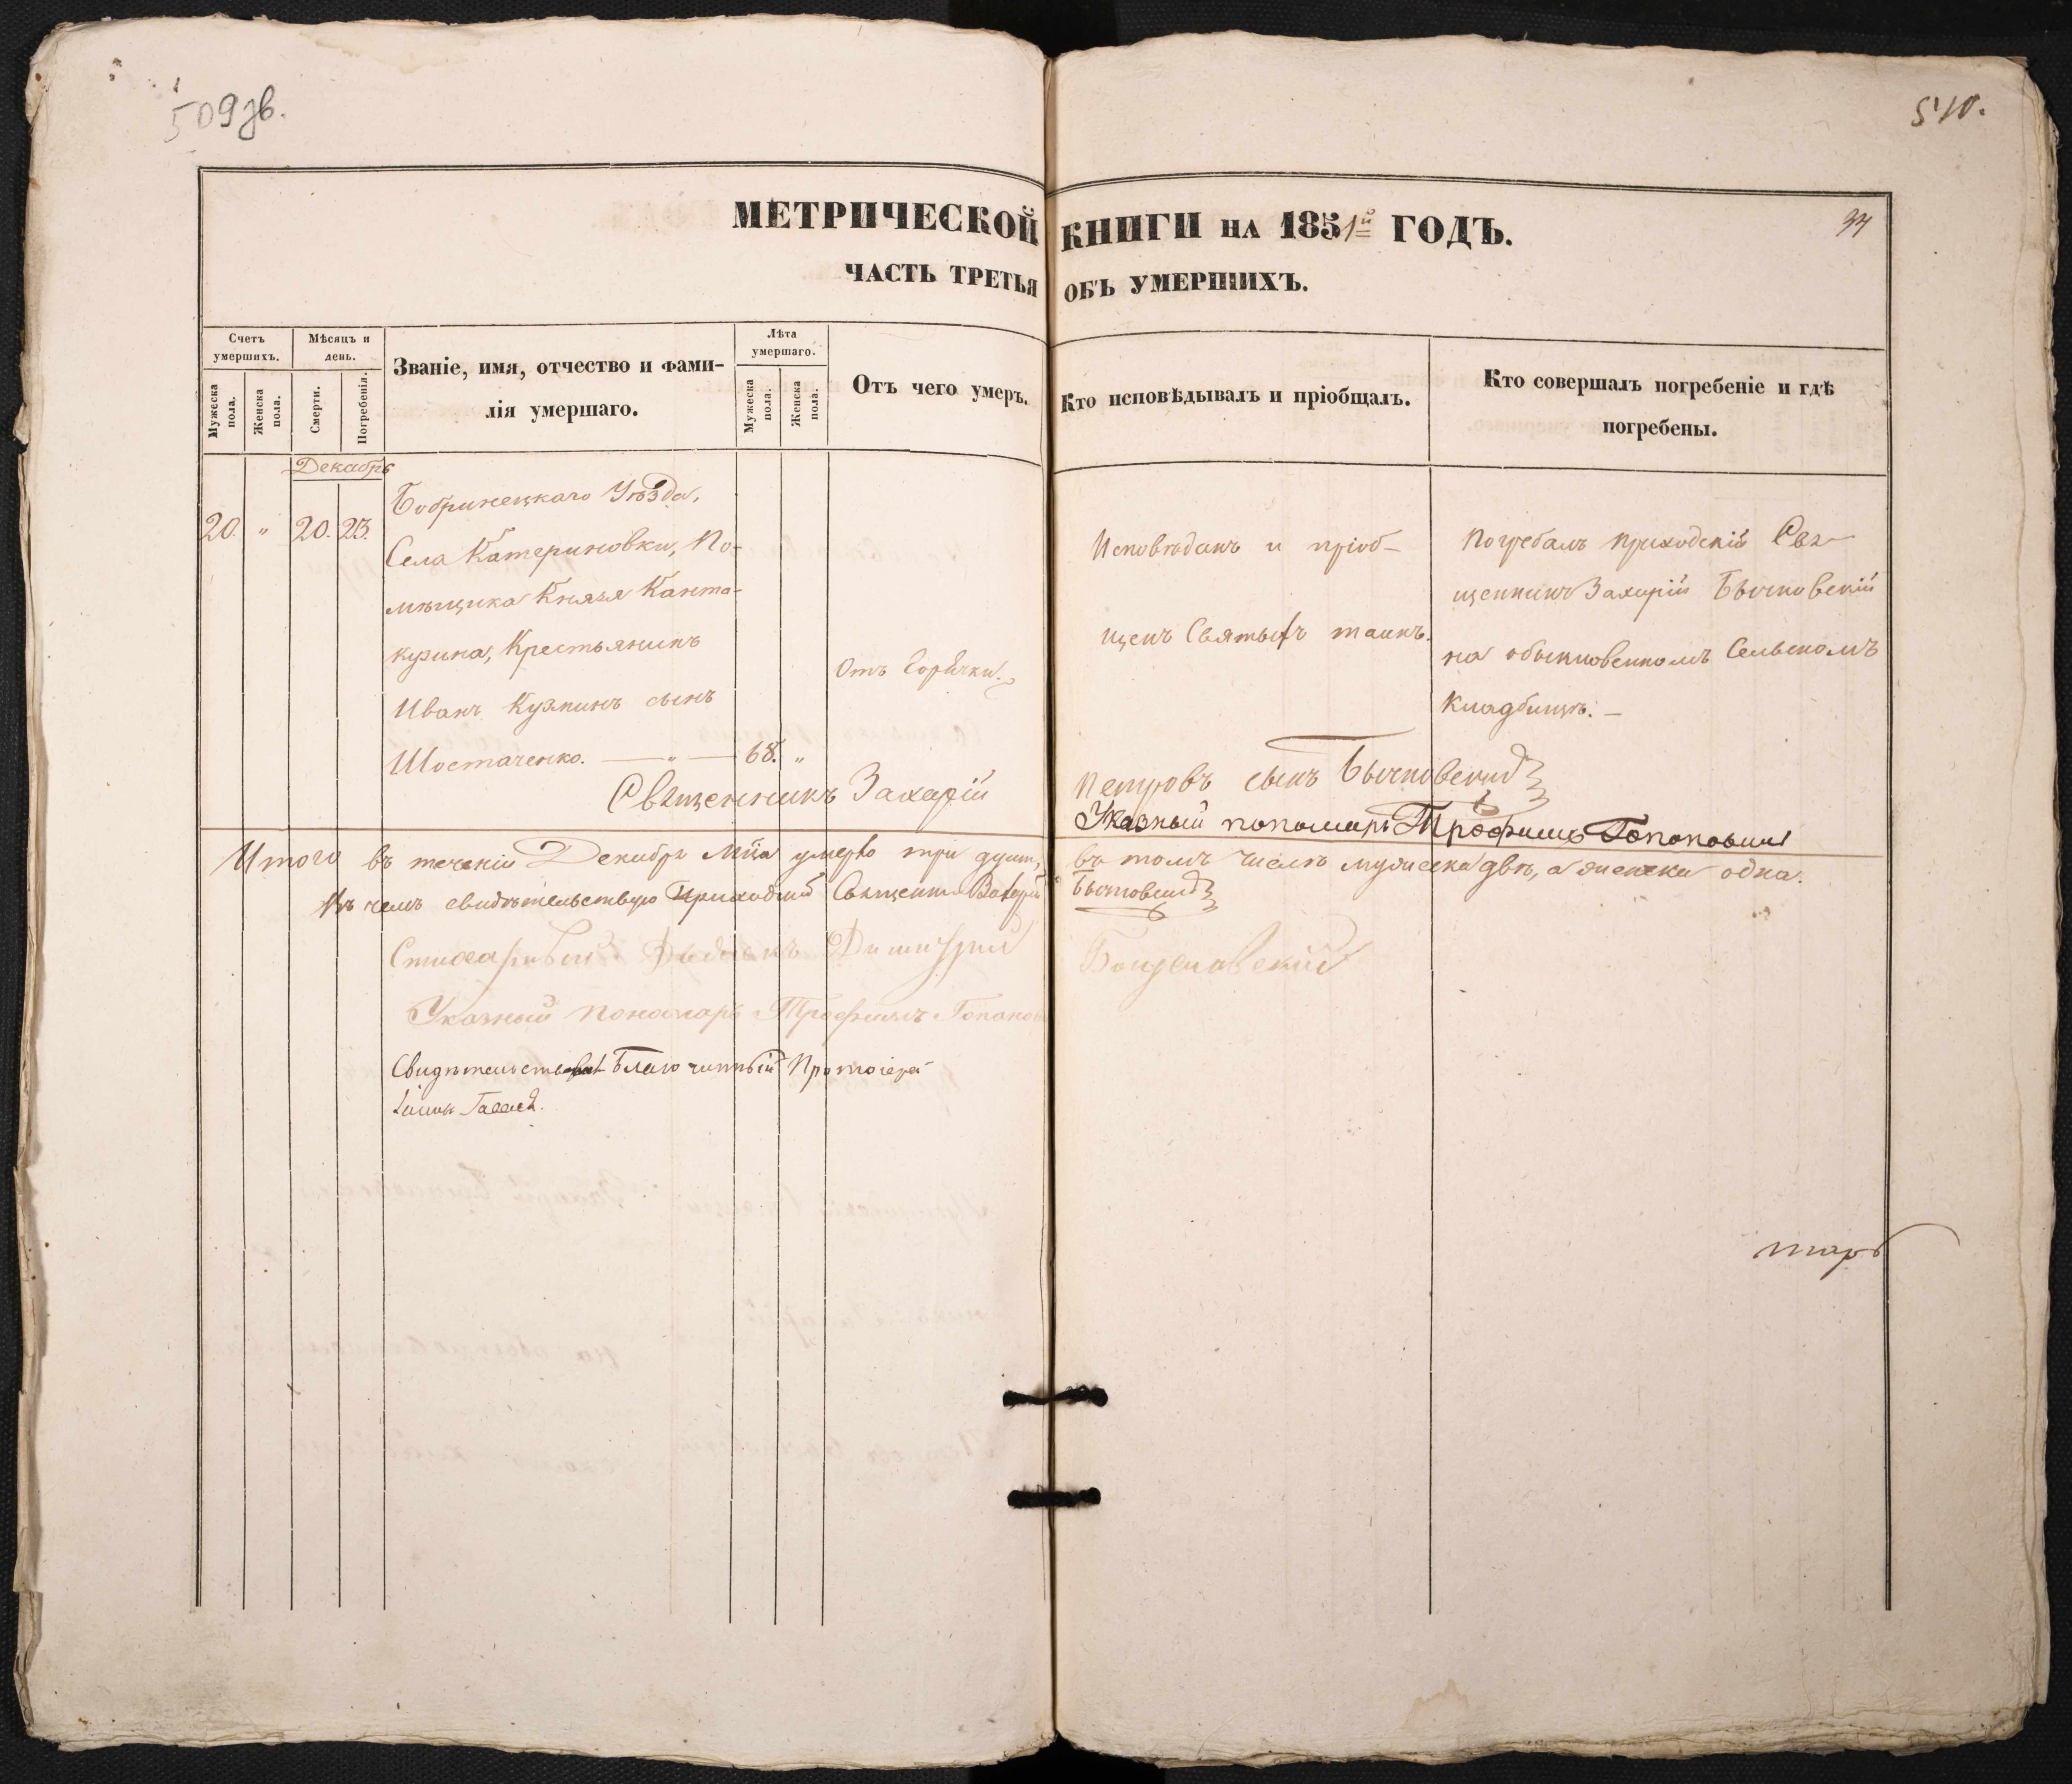 509 зв.
510.
34
МЕТРИЧЕСКОЙ КНИГИ НА 1851й ГОДЪ.
ЧАСТЬ ТРЕТЬЯ ОБЪ УМЕРШИХЪ.
Счетъ умершихъ.
Мужеска пола.
Женска пола.
Мѣсяцъ и день.
Смерти.
Погребенія.
Званіе, имя, отчество и фами-
лія умершаго.
Лѣта умершаго.
Мужеска пола.
Женска пола.
Отъ чего умеръ.
Кто исповѣдывалъ и пріобщалъ.
Кто совершалъ погребеніе и гдѣ
погребены.
Декабрь
20. " 20. 23.
Бобринецкаго Уѣзда,
Села Катериновки, По-
мѣщика Князя Канта-
кузина, Крестьянинъ
Иванъ Кузминъ сынъ
Шостаченко. — " — 68. "
Отъ Горячки.
Исповѣданъ и пріоб-
щенъ Святыхъ таинъ.
Погребалъ приходскій Свя-
щенникъ Захарій Бычковскій
на обыкновенномъ Сельскомъ
Кладбищѣ. —
Священникъ Захарій Петровъ сынъ Бычковскій
Указный пономарь Трофимъ
Итого въ теченіи Декабря М-ца умерло три души, въ томъ числѣ мужеска двѣ, а женска одна.
Въ чемъ свидѣтельствую Приходскій Священникъ Захарій Бычковскій
Димитрій
Указный пономарь Трофимъ
Свидѣтельствовалъ Благочинный Протоіерей